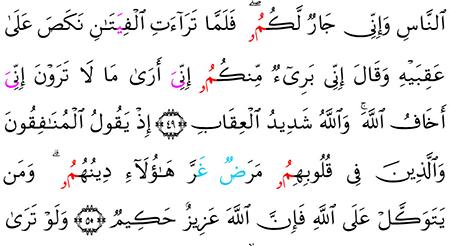 اَلنَّاسِ وَإِنِّى جَارٌ لَّكُمُۥۖ فَلَمَّا تَرَآءَتِ اِلْفِيَتَٰنِ نَكَصَ عَلَىٰ
عَقِبَيْهِ وَقَالَ إِنِّى بَرِىٓءٌ مِّنكُمُۥ إِنِّىَ أَرَىٰ مَا لَا تَرَوْنَ إِنِّىَ
أَخَافُ اُللَّهَۚ وَاَللَّهُ شَدِيدُ اُلْعِقَابِ ۝٤٩ إِذْ يَقُولُ اُلْمُنَٰفِقُونَ
وَاَلَّذِينَ فِى قُلُوبِهِمُۥ مَرَضٌ غَرَّ هَٰٓؤُلَآءِ دِينُهُمُۥۗ وَمَن
يَتَوَكَّلْ عَلَى اَللَّهِ فَإِنَّ اَللَّهَ عَزِيزٌ حَكِيمٌ ۝٥٠ وَلَوْ تَرَىٰٓ